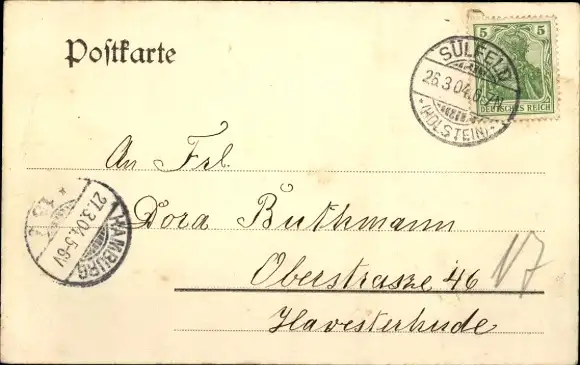 Postkarte
5 5
DEUTSCHES REICH
SÜLFELD
26.3.04.6-7N.
*(HOLSTEIN)*
An Frl.
Dora Buthmann
Oberstrasse 46
Havesterhude
17
HAMBURG
27.3.04.5-6V
* 13